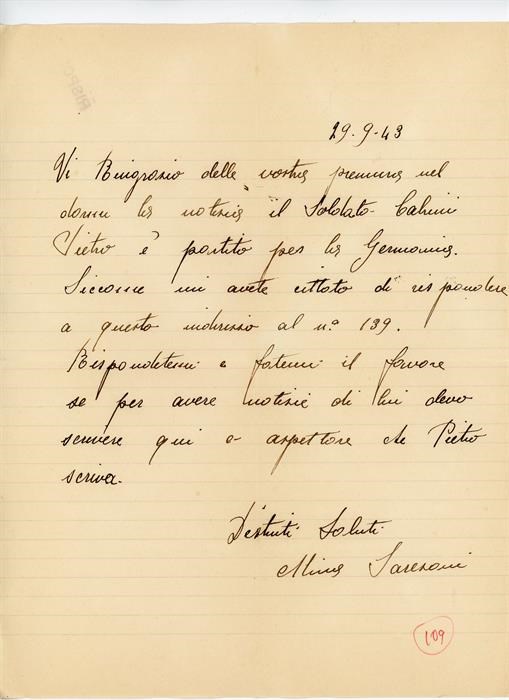 RISPO
29-9-43
Vi Ringrazio della vostra premura nel
darmi la notizia il Soldato
Pietro è partito per la Germania.
Siccome mi avete citato di rispondere
a questo indirizzo al n.° 139.
Rispondetemi e fatemi il favore
se per avere notizie di lui devo
scrivere qui o aspettare che Pietro
scriva.
Distinti Saluti
109